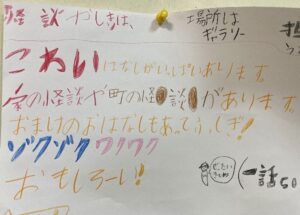 怪談やしきは、 場所は
ギャラリー
こわいはなしがいっぱいあります。
家の怪談や町の怪談があります。
おまけのおはなしもあってうっしぎ!
ゾクゾク ワクワク
おもしろーい!
(一話50